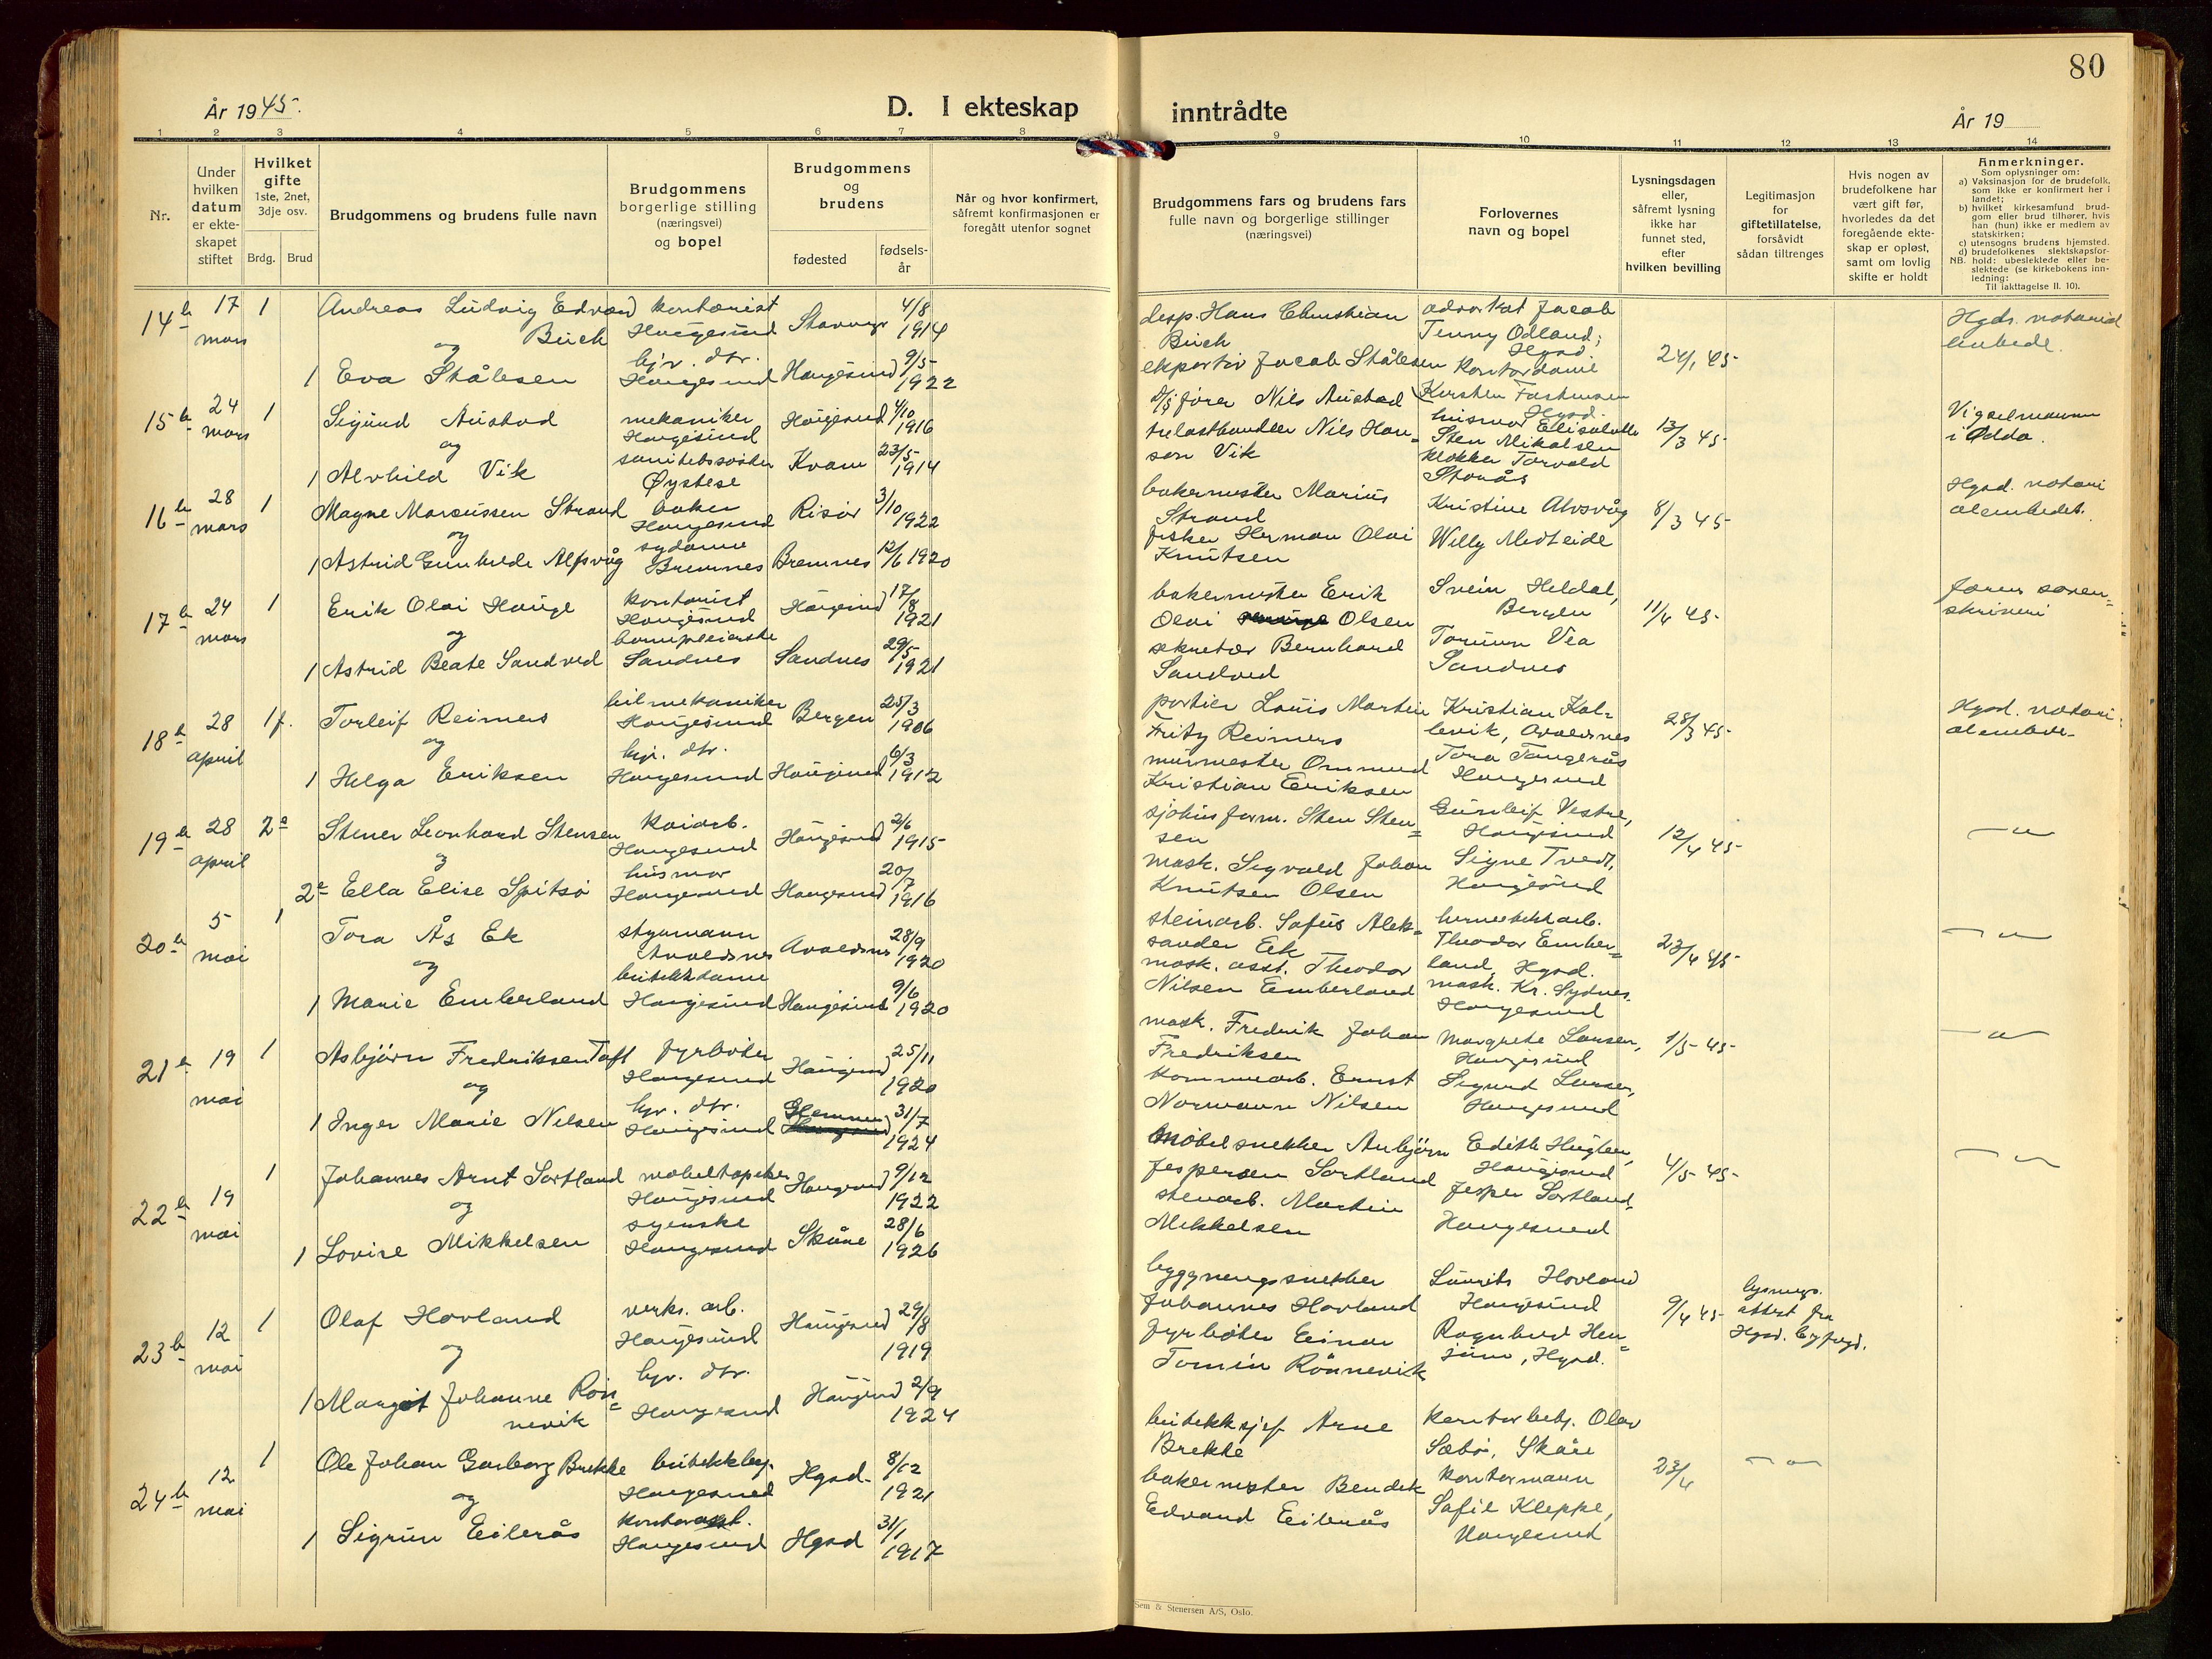 80
År 1945.
D. I ekteskap inntrådte
År 19
1 2 3 4 5 6 7 8 9 10 11 12 13 14
Nr.
Under hvilken datum er ekteskapet stiftet
Hvilket gifte
1ste, 2net, 3dje osv.
Brdg. Brud
Brudgommens og brudens fulle navn
Brudgommens borgerlige stilling (næringsvei) og bopel
Brudgommens og brudens
fødested
fødselsår
Når og hvor konfirmert,
såfremt konfirmasjonen er
foregått utenfor sognet
Brudgommens fars og brudens fars
fulle navn og borgerlige stillinger
(næringsvei)
Forlovernes
navn og bopel
Lysningsdagen
eller,
såfremt lysning
ikke har
funnet sted,
efter
hvilken bevilling
Legitimasjon
for
giftetillatelse,
forsåvidt
sådan tiltrenges
Hvis nogen av
brudefolkene har
vært gift før,
hvorledes da det
foregående ekte-
skap er opløst,
samt om lovlig
skifte er holdt
Anmerkninger.
Som oplysninger om:
a) Vaksinasjon for de brudefolk,
som ikke er konfirmert her i
landet;
b) hvilket kirkesamfund brud-
gom eller brud tilhører, hvis
han (hun) ikke er medlem av
statskirken;
c) utensogns brudens hjemsted.
d) brudefolkenes slektskapsfor-
NB. hold: ubeslektede eller be-
slektede (se kirkebokens inn-
ledning:
Til iakttagelse II. 10).
14 b 17 mars 1 Andreas Ludvig Edvard Buch
kontorist Haugesund Stavanger 4/8 1914
og
1 Eva Stålesen
hjv. dtr. Haugesund Haugesund 9/5 1922
desp. Hans Christian Buch
ekspeditør Jacob Stålesen
advokat Jacob Tenny Odland, Hgsd.
Kontordame Kirsten Hgsd.
24/1 45
Hgds. notarialembede.
15 b 24 mars 1 Sigurd Austad
mekaniker Haugesund Haugesund 4/10 1916
og
1 Alvhild Vik
sanitetssøster Øystese Kvam 23/5 1914
fører Nils Austad
trelasthandler Nils Hanson Vik
husmor Sten Mikalsen
klokker Torvald
13/3 45
Vigselmannen i Odda.
16 b 28 mars 1 Magne Marcussen Strand
baker Haugesund Risør 3/10 1922
og
1 Astrid Gunhilde Alfsvåg
sydame Bremnes Bremnes 12/6 1920
bakermester Marius Strand
fisker Herman Olai Knutsen
Kristine Alvsvåg
Willy Medteide
8/3 45
Hgsd. notarialembedet.
17 b 24 mars 1 Erik Olai Hauge
kontorist Haugesund Haugesund 17/8 1921
og
1 Astrid Beate Sandved
barnepleierske Sandnes Sandnes 29/5 1921
bakermester Erik Olai Olsen
sekretær Bernhard Sandved
Svein Heldal, Bergen
Torunn Vea Sandnes
11/4 45
Jæren sorenskriveri
18 b 28 april 1 f. Torleif Reimers
bilmekaniker Haugesund Bergen 25/3 1906
og
1 Helga Eriksen
hjv. dtr. Haugesund Haugesund 6/3 1912
portier Louis Martin Fritz Reimers
murmester Ommund Kristian Eriksen
Kristian Kallevik, Avaldsnes
Tora Tangerås Haugesund
28/3 45
Hgsd. notarialembede
19 b 28 april 2 Stener Leonhard Stensen
kaiarb. Haugesund Haugesund 2/6 1915
og
2 Ella Elise Spitsø
husmor Haugesund Haugesund 20/7 1916
sjøhusform. Sten Stensen
mask. Sigvald Johan Knutsen Olsen
Gunleif Vestre, Haugesund
Signe Tvedt, Haugesund
12/4 45
— " —
20 b 5 mai 1 Tora Ås Ek
styrmann Avaldsnes Avaldsnes 28/9 1920
og
1 Marie Emberland
butikkdame Haugesund Haugesund 9/6 1920
steinarb. Sofus Aleksander Eik
mask. asst. Theodor Nilsen Emberland
Theodor Emberland, Hgsd.
mask. Kr. Sydnes. Haugesund
23/4 45
— " —
21 b 19 mai 1 Asbjørn Fredriksen Toft
fyrbøter Haugesund Haugesund 25/11 1920
og
1 Inger Marie Nilsen
hjv. dtr. Haugesund Glemmen 31/7 1924
mask. Fredrik Johan Fredriksen
kommunearb. Ernst Normann Nilsen
Margrete Larsen, Haugesund
Sigurd Larsen, Haugesund
1/5 45
— " —
22 b 19 mai 1 Johannes Arnt Sortland
møbeltapetser Haugesund Haugesund 9/12 1922
og
1 Lovise Mikkelsen
syerske Haugesund Skåre 28/6 1926
Møbelsnekker Anbjørn Jespersen Sortland
stenarb. Martin Mikkelsen
Edith Huglen, Haugesund
Jesper Sortland, Haugesund
4/5 45
— " —
23 b 12 mai 1 Olaf Hovland
verks. arb. Haugesund Haugesund 29/8 1919
og
1 Margot Johanne Rønnevik
hjv. dtr. Haugesund Haugesund 2/9 1924
bygningssnekker Johannes Hovland
fyrbøter Einar Tomin Rønnevik
Laurits Hovland Haugesund
Ragnhild Henjum, Hgsd.
9/4 45
lysnings. attest fra Hgsd. byfogd.
24 b 12 mai 1 Ole Johan Garborg Brekke
butikkbetj. Haugesund Hgsd. 8/12 1921
og
1 Sigrun Eilerås
kontorasst. Haugesund Hgsd 31/1 1917
butikksjef Arne Brekke
bakermester Bendik Edvard Eilerås
kontorbetj. Olav Sæbø, Skåre
kontormann Sofie Kleppe, Haugesund
23/4
— " —
Sem & Stenersen A/S, Oslo.